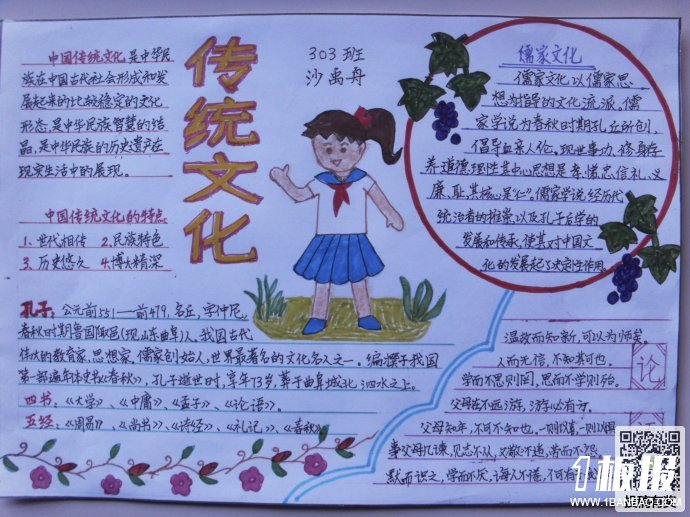 传统文化
303班
沙禹舟
中国传统文化是中华民
族在中国古代社会形成和发
展起来的比较稳定的文化
形态,是中华民族智慧的结
晶,是中华民族的历史遗产在
现实生活中的展现。
中国传统文化的特点
1、世代相传 2、民族特色
3、历史悠久 4、博大精深
儒家文化
儒家文化以儒家思
想为指导的文化流派。儒
家学说为春秋时期孔丘所创,
倡导血亲人伦、现世事功、修身存
养、道德理性,其中心思想是孝、忠、信、礼、义
廉、耻,其核心是“仁”。儒家学说经历代
统治者的推崇,以及孔子后学的
发展和传承,使其对中国文
化的发展起了决定性作用。
孔子:公元前551——前479,名丘,字仲尼。
春秋时期鲁国陬邑(现山东曲阜)人。我国古代
伟大的教育家、思想家,儒家创始人,世界最著名的文化名人之一。编撰了我国
第一部编年体史书《春秋》,孔子逝世时,享年73岁,葬于曲阜城北泗水之上。
四书:《大学》、《中庸》、《孟子》、《论语》。
五经:《周易》、《尚书》、《诗经》、《礼记》、《春秋》
论
温故而知新,可以为师矣。
人而无信,不知其可也。
学而不思则罔,思而不学则殆。
父母在不远游,游必有方。
父母知年,不可不知也,一则以喜,一则以惧
事父母几谏,见志不从,又敬不违,劳而不怨。
默而识之,学而不厌,诲人不倦,何有
1板报
WWW.1BANBAO.COM